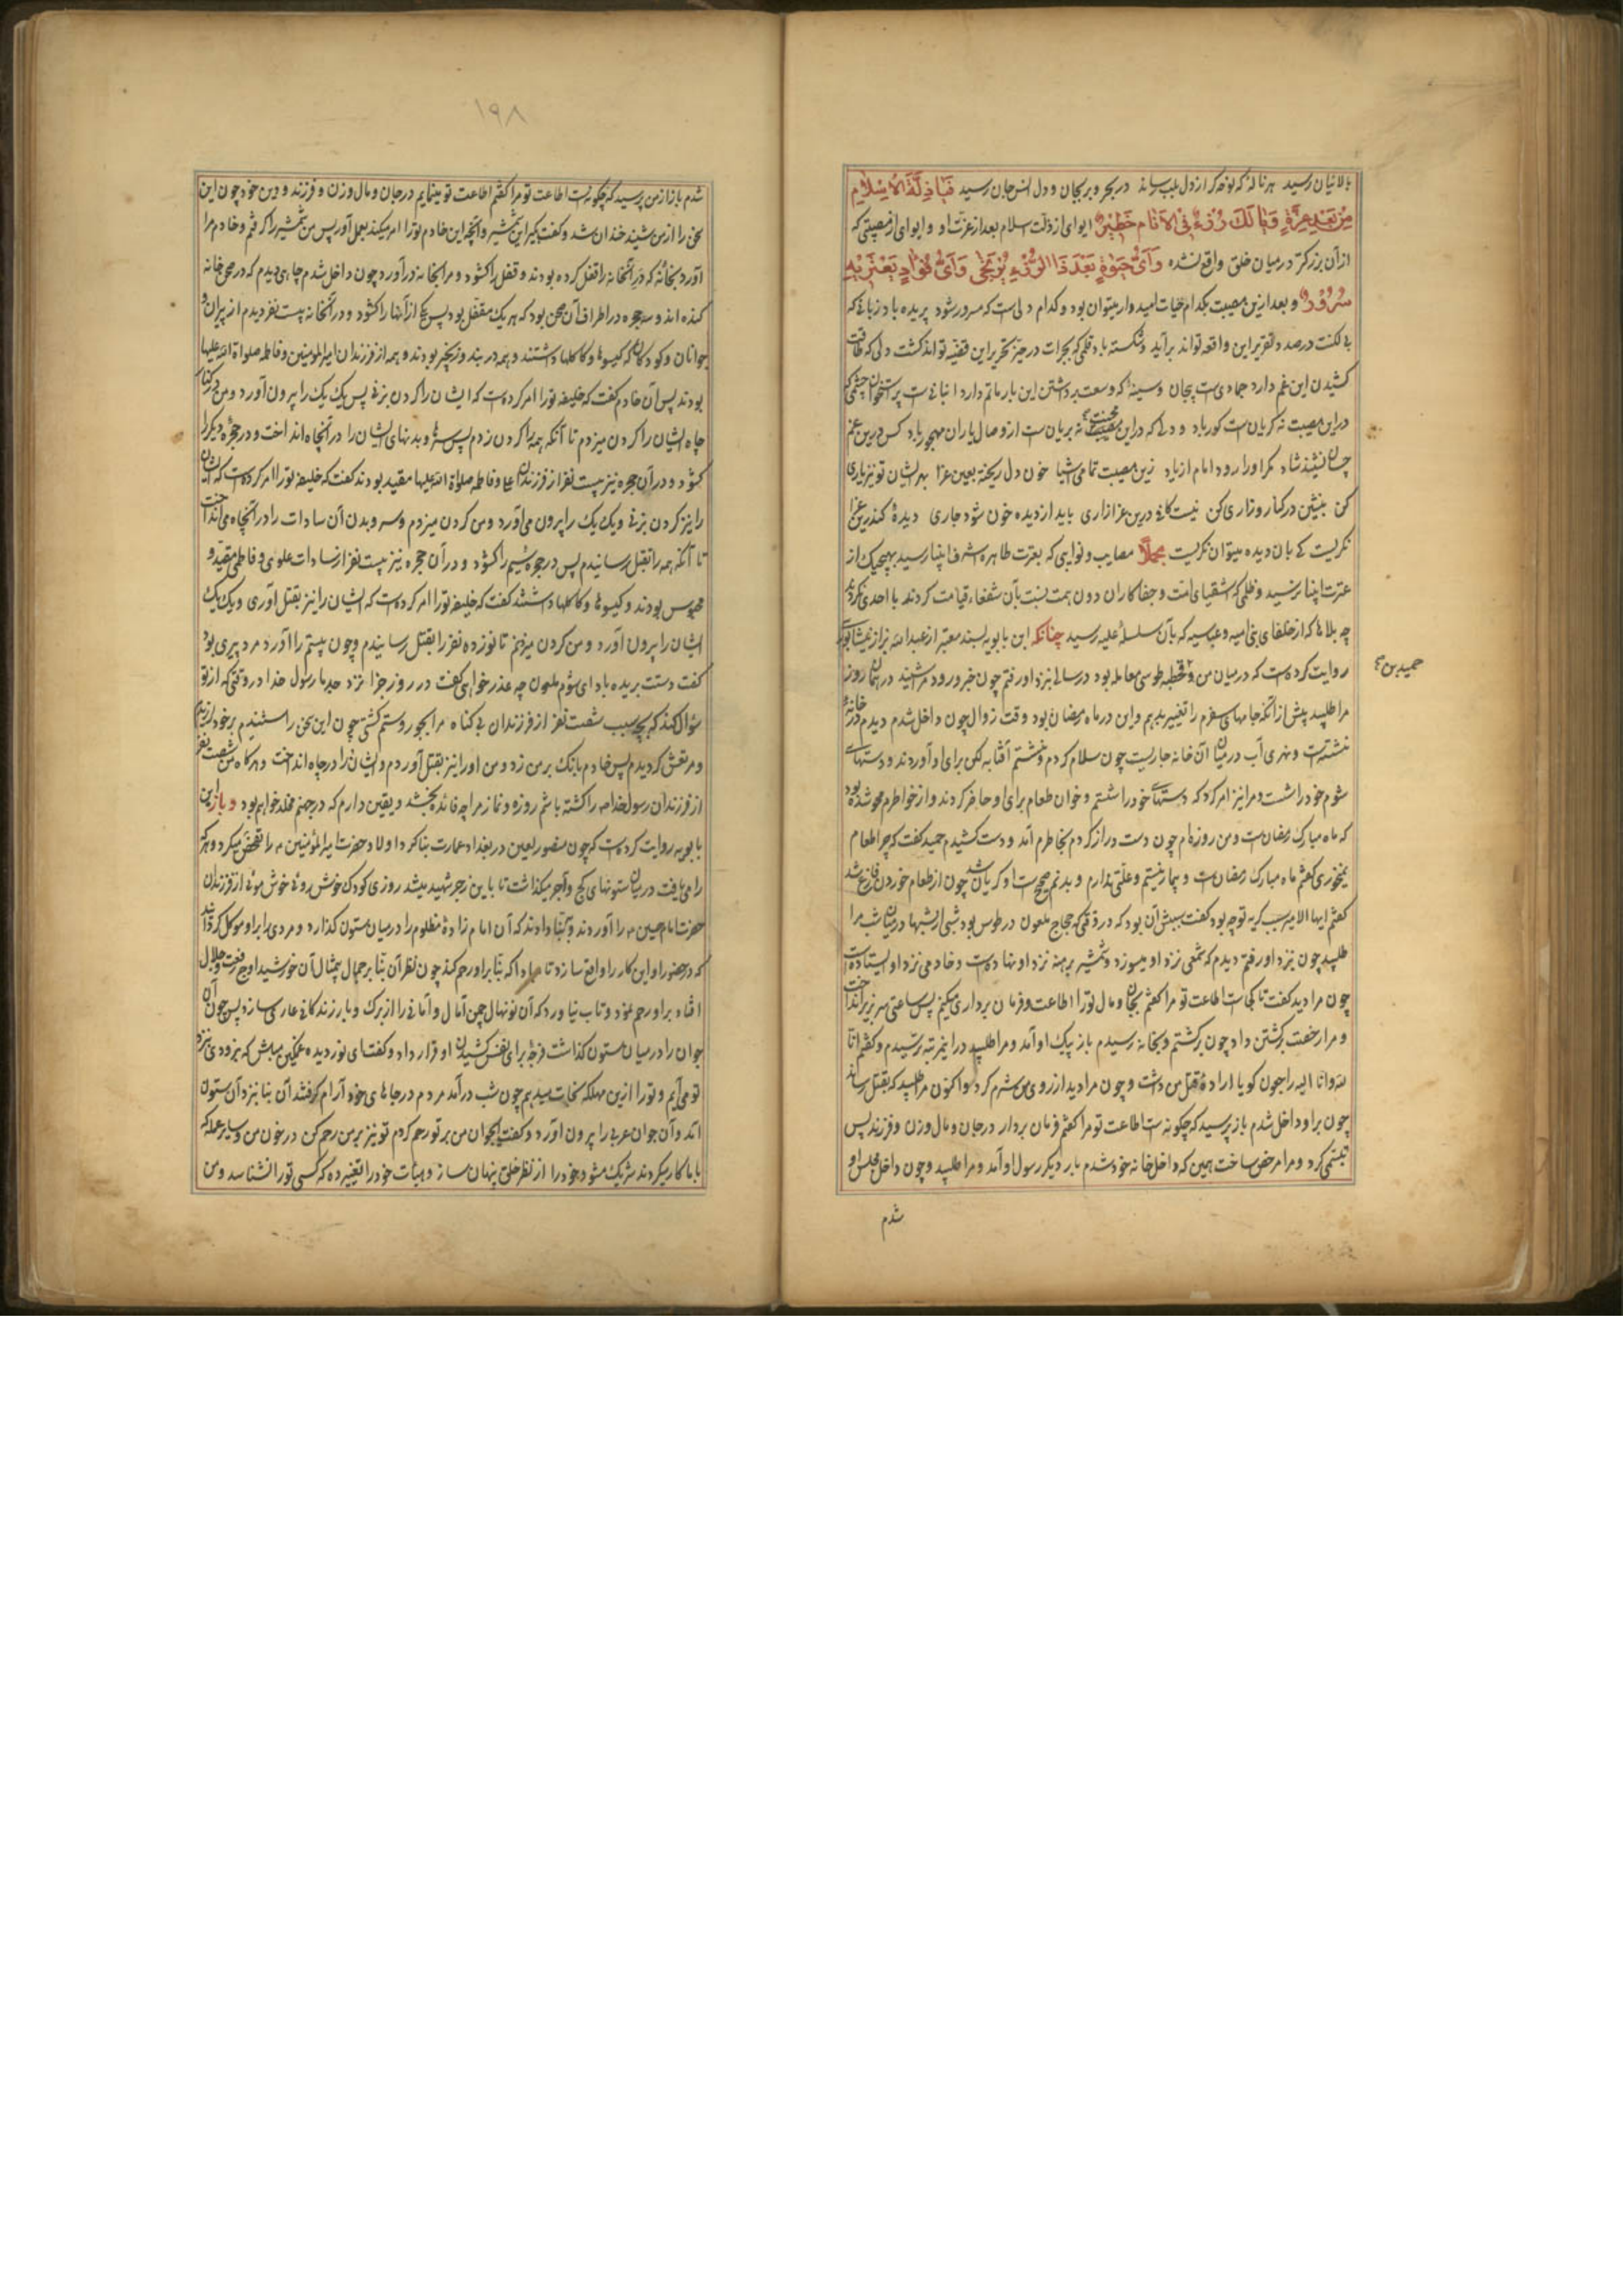 بالانیان رسید هر ناله که نوحه‌گر از دل بلب رساند در بحر و بر بجان و دل انس و جان رسید فَیَا ذِلَّةَ الْاِسْلَامِ
مِنْ بَعْدِ عِزَّةٍ وَیَا لَكَ رُزْءٌ فِی الْاَنَامِ خَطِیْرٌ ایوای از ذلت اسلام بعد از عزت او و ایوای از مصیبتی که
از آن بزرگتر در میان خلق واقع نشده وَاَیُّ حَیٰوةٍ بَعْدَ ذَا الرُّزْءِ یُرْتَجٰی وَاَیُّ فُؤَادٍ یَعْتَرِیْهِ
سُرُوْرٌ و بعد ازین مصیبت بکدام حیات امیدوار میتوان بود و کدام دلی است که مسرور شود بریده باد زبانی که
بی لکنت در صدد تقریر این واقعه تواند برآید و شکسته باد قلمی که بجرات در حیّز تحریر این قضیّه تواند گذشت دلی که طاقت
کشیدن این غم دارد جمادی است بیجان و سینهٔ که وسعت برداشتن این بار ماتم دارد انبانی است پر استخوان چشمی که
در این مصیبت نه گریان است کور باد و دلی که در این محنت نه بریان است از وصال یاران مهجور باد کس درین غم
چسان نشیند شاد مگر او را رود امام از یاد زین مصیبت تمامی اشیا خون دل ریخته بعین عزا بهر ایشان تو نیز یاری
کن بنشین در کنار و زاری کن نیست کافی درین عزاداری باید از دیده خون شود جاری دیدهٔ کندرین عزا
نگریست کی بان دیده میتوان نگریست مجملاً مصایب و نوایبی که بعترت طاهره اشرف انبیا رسید بهیچیک از
عترت انبیا نرسید و ظلمی که اشقیای امّت و جفاکاران دون همت نسبت بآن شفعاء قیامت کردند با احدی نکردند
چه بلاها که از خلفای بنی امیه و عباسیه که بآن سلسلهٔ علیه رسید چنانکه ابن بابویه بسند معتبر از عبدالله بزاز نیشابوری
روایت کرده است که در میان من و قحطبه طوسی معامله بود در سالی بنزد او رفتم چون خبر ورود مرا شنید در همان روز
حمید بن
مرا طلبید پیش از آنکه جامهای سفرم را تغییر بدهم و این در ماه رمضان بود وقت زوال چون داخل شدم دیدم در خانهٔ
نشسته است و نهری آب در میان آن خانه جاریست چون سلام کردم و نشستم آفتابه لگن برای او آوردند و دستهای
شوم خود را شست و مرا نیز امر کرد که دستهای خود را شستم و خوان طعام برای او حاضر کردند و از خواطرم محو شده بود
که ماه مبارک رمضان است و من روزه‌ام چون دست دراز کردم بخاطرم آمد و دست کشیدم حمید گفت که چرا طعام
نمیخوری گفتم ماه مبارک رمضان است و بیمار نیستم و علتی ندارم و بدنم صحیح است او گریان شد چون از طعام خوردن فارغ شد
گفتم ایها الامیر سبب گریه تو چه بود گفت سببش آن بود که در وقتی که حجاج ملعون در طوس بود شبی از شبها در میان شب مرا
طلبید چون بنزد او رفتم دیدم که شمعی نزد او میسوزد و شمشیر برهنه نزد او نهاده است و خادمی نزد او ایستاده است
چون مرا دید گفت تا کجا است اطاعت تو مرا گفتم بجان و مال تو را اطاعت و فرمان برداری میکنم پس ساعتی سر بزیر انداخت
و مرا رخصت برگشتن داد چون برگشتم و بخانه رسیدم باز پیک او آمد و مرا طلبید در این مرتبه ترسیدم و گفتم انا
لله و انا الیه راجعون گویا ارادهٔ قتل من داشت و چون مرا دید از روی من شرم کرد و اکنون مرا طلبید که بقتل رساند
چون بر او داخل شدم باز پرسید که چگونه است اطاعت تو مرا گفتم فرمان بردار در جان و مال و زن و فرزند پس
تبسمی کرد و مرا مرخص ساخت همین که داخل خانه خود شدم بار دیگر رسول او آمد و مرا طلبید و چون داخل مجلس او
شدم
١٩٨
شدم باز از من پرسید که چگونه است اطاعت تو مرا گفتم اطاعت تو مینمایم در جان و مال و زن و فرزند و دین خود چون این
سخن را از من شنید خندان شد و گفت بگیر این شمشیر و آنچه این خادم تو را امر میکند بعمل آور پس من شمشیر را گرفتم و خادم مرا
آورد بخانهٔ که در آنخانه را قفل کرده بودند و قفل را گشود و مرا بخانه درآورد چون داخل شدم چاهی دیدم که در صحن خانه
کنده‌اند و سه حجره در اطراف آن صحن بود که هر یک مقفل بود پس یکی از آنها را گشود و در آنخانه بیست نفر دیدم از پیران و
جوانان و کودکان که گیسوها و کاکلها داشتند و همه در بند و زنجیر بودند و همه از فرزندان امیرالمؤمنین و فاطمه صلوات الله علیها
بودند پس آن خادم گفت که خلیفه تو را امر کرده است که ایشان را گردن بزنی پس یک یک را بیرون آورد و من در کنار
چاه ایشان را گردن میزدم تا آنکه همه را گردن زدم پس سرها و بدنهای ایشان را در آنچاه انداخت و در حجره دیگر را
گشود و در آن حجره نیز بیست نفر از فرزندان علی و فاطمه صلواة الله علیهما مقید بودند گفت که خلیفه تو را امر کرده است که ایشان
را نیز گردن بزنی و یک یک را بیرون می‌آورد و من گردن میزدم و سر و بدن آن سادات را در آنچاه می‌انداخت
تا آنکه همه را بقتل رسانیدم پس در حجره سیّم را گشود و در آن حجره نیز بیست نفر از سادات علوی و فاطمی مقیّد و
محبوس بودند و گیسوها و کاکلها داشتند گفت که خلیفه تو را امر کرده است که ایشان را نیز بقتل آوری و یک یک
ایشان را بیرون آورد و من گردن میزدم تا نوزده نفر را بقتل رسانیدم و چون بیستم را آورد مرد پیری بود
گفت دستت بریده باد ای شوم ملعون چه عذر خواهی گفت در روز جزا نزد جدّ ما رسول خدا در وقتی که از تو
سؤال کند که بچه سبب شصت نفر از فرزندان بی گناه مرا بجور و ستم کشتی چون این سخن را شنیدم بر خود لرزیدم
و مرتعش گردیدم پس خادم بانک بر من زد و من او را نیز بقتل آوردم و ایشان را در چاه انداخت و هرگاه من شصت نفر
از فرزندان رسول خدا را کشته باشم روزه و نماز مرا چه فائده بخشد و یقین دارم که در جهنم مخلد خواهم بود و باز ابن
بابویه روایت کرده است که چون منصور لعین در بغداد عمارت بنا کرد اولاد حضرت امیرالمؤمنین را تفحّص میکرد و هر که
را می‌یافت در میان ستونهای گچ و آجر میگذاشت تا باین زجر شهید میشد روزی کودک خوش روی خوش موئی از فرزندان
حضرت امام حسین را آوردند و به بنّا دادند که آن امام زادهٔ مظلوم را در میان ستون گذارد و مردی را بر او موکل کردند
که در حضور او این کار را واقع سازد تا مبادا که بنّا بر او رحم کند چون نظر آن بنّا بر جمال بیمثال آن خورشید اوج رفعت و جلال
افتاد بر او رحم نمود و تاب نیاورد که آن نونهال چمن آمال و امانی را از برگ و بار زندگانی عاری سازد پس چون آن
جوان را در میان ستون گذاشت فرجهٔ برای نفس کشیدن او قرار داد و گفت ای نور دیده غمگین مباش که بزودی بنزد
تو می‌آیم و تو را ازین مهلکه نجات میدهم چون شب درآمد مردم در جاهای خود آرام گرفتند آن بنا بنزد آن ستون
آمد و آن جوان عربی را بیرون آورد و گفت ایجوان من بر تو رحم کردم تو نیز بر من رحم کن در خون من و سایر عمله که
با ما کار میکردند شریک مشو و خود را از نظر خلق پنهان ساز و هیأت خود را تغییر ده که کسی تو را نشناسد و من